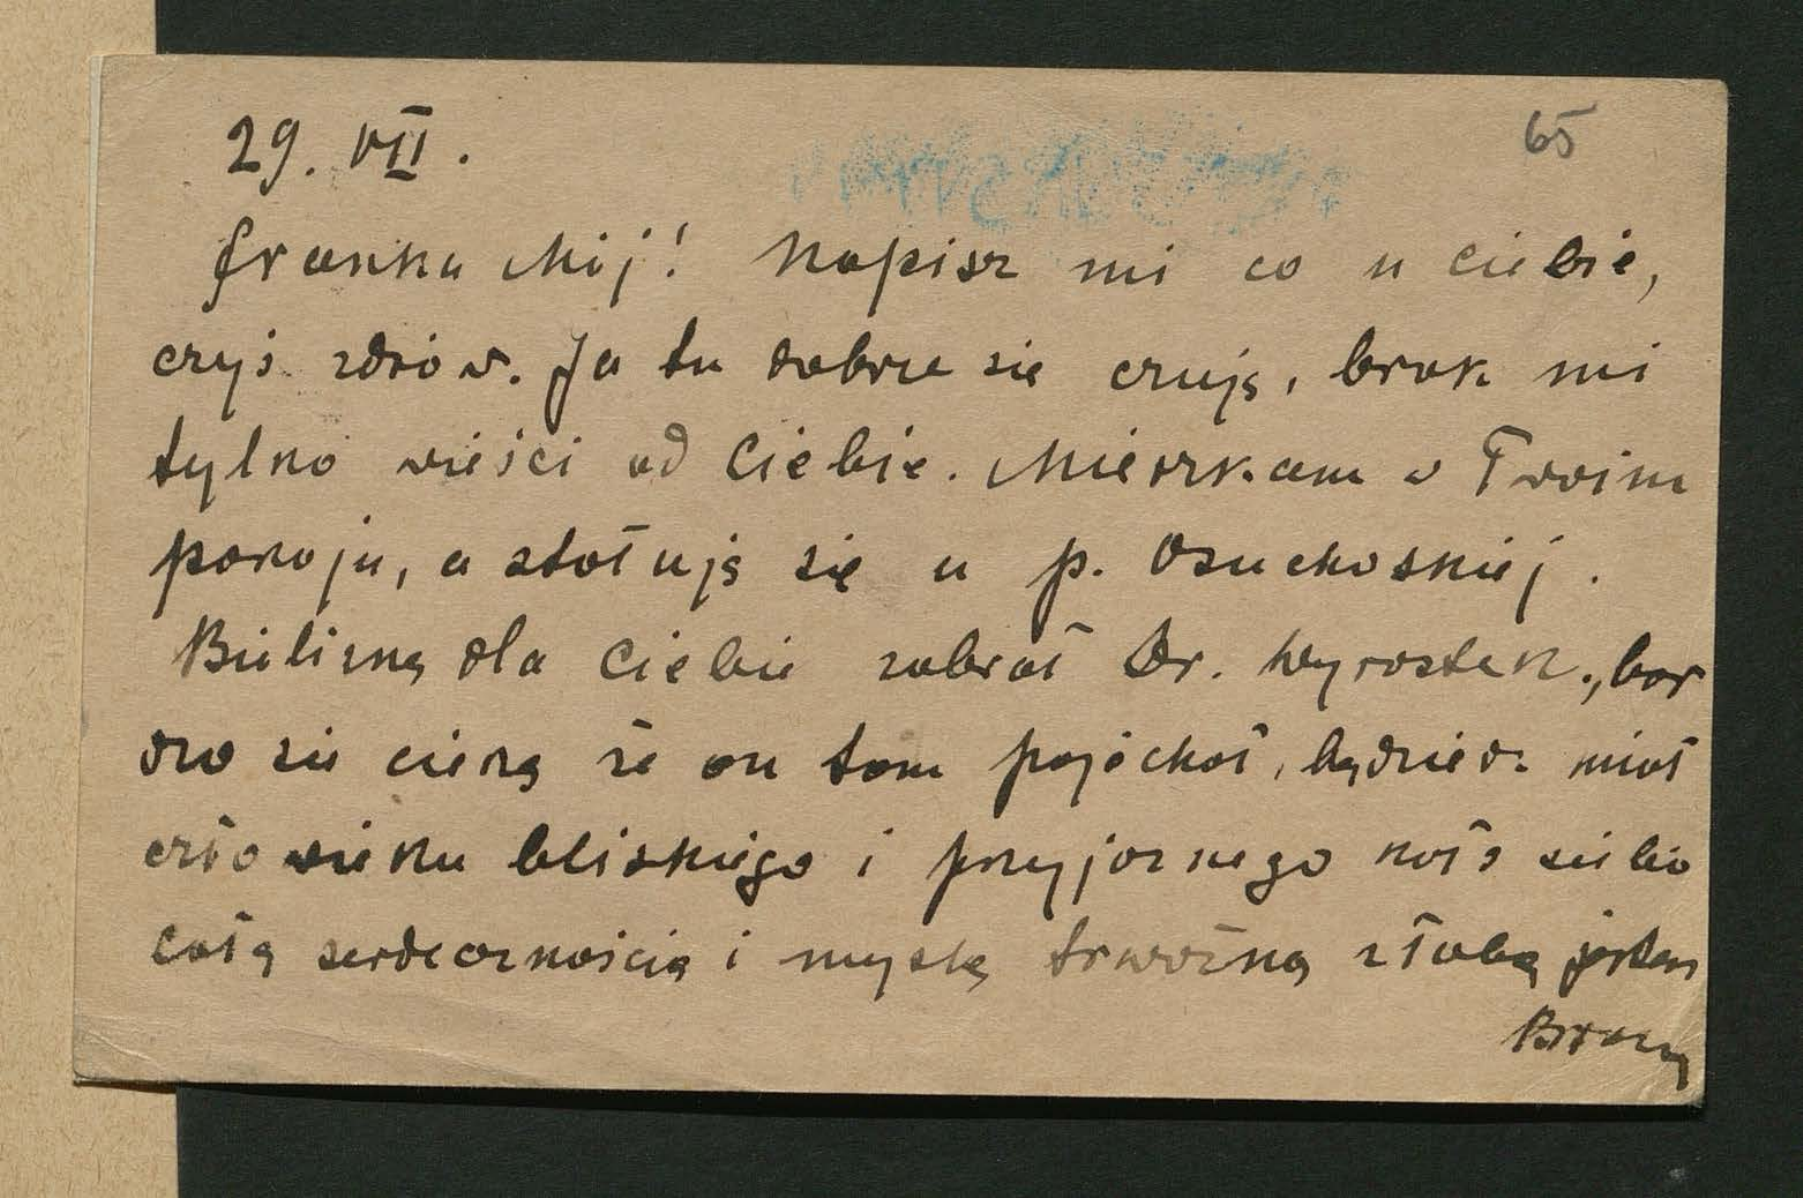 29. VII.
65
Franku Mój! Napisz mi co u ciebie,
czyś zdrów. Ja tu dobrze się czuję, brak mi
tylko wieści od Ciebie. Mieszkam w Twoim
pokoju, a stołuję się u p. Osuchoskiej.
Bieliznę dla Ciebie zabrał Dr. Wyrostek., bar
dzo się cieszę że on tam pojechał, będziesz miał
człowieka bliskiego i przyjaznego koło siebie
całą serdecznością i myślą trwożną z Tobą jestem